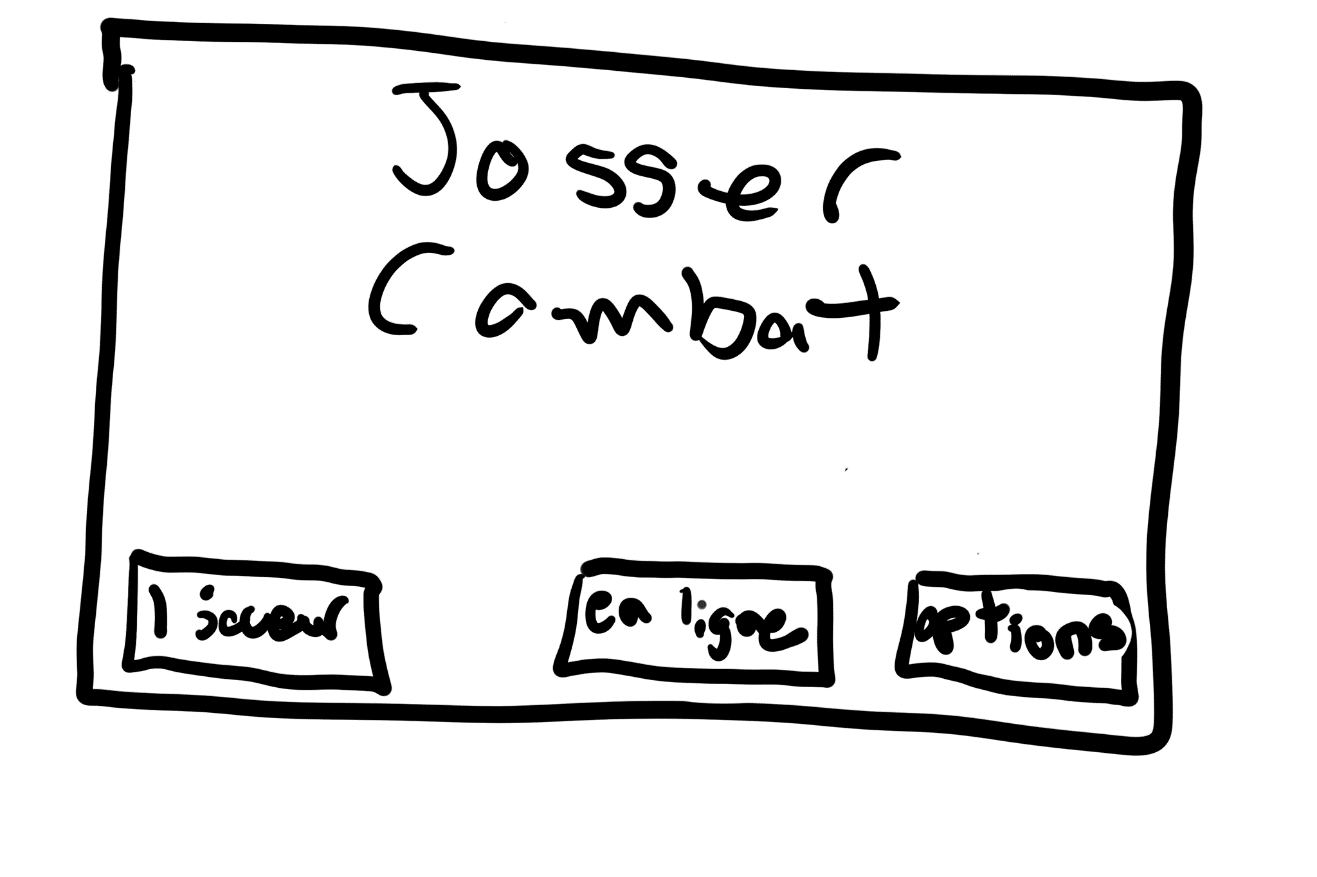 Josser
Combat
1 joueur
en ligne
options